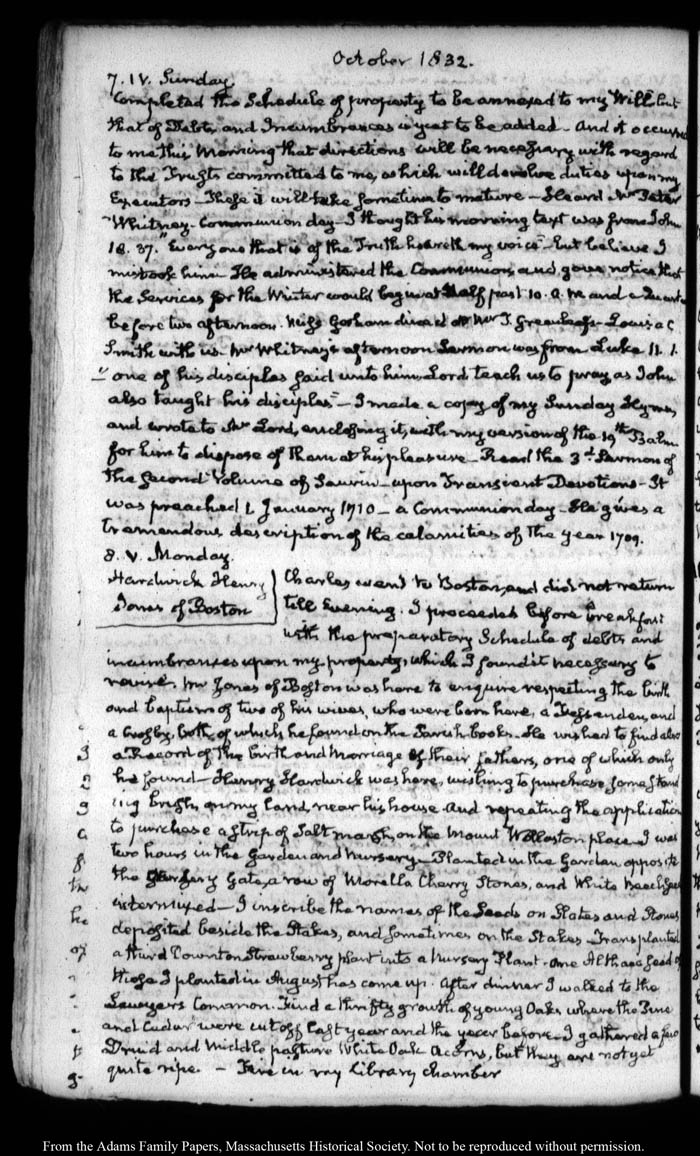 October 1832.
7. IV. Sunday.
Completed the Schedule of property to be annexed to my Will, but
that of Debts and Incumbrances is yet to be added. And it occurred
to me this Morning that directions will be necessary with regard
to the Trusts committed to me, which will devolve duties upon my
Executors. These it will take sometime to mature. Heard Mr Peter
Whitney. Communion day. I thought his morning text was from John
18. 37. "Every one that is of the Truth heareth my voice" but believe I
mistook him. He administered the Communion, and gave notice that
the Services for the Winter would begin at Half past 10. A. M and a Quarter
before two afternoon. Miss Gorham dined at Mr T. Greenleaf's. Louisa C
Smith with us. Mr Whitney's afternoon Sermon was from Luke 11. 1.
"one of his disciples said unto him, Lord teach us to pray, as John
also taught his disciples" — I made a copy of my Sunday Hymn,
and wrote to Mr Lord, enclosing it, with my version of the 19th Psalm
for him to dispose of them at his pleasure. Read the 3d Sermon of
the second Volume of Saurin — upon Transient Devotions — It
was preached 1 January 1710 — a Communion day. He gives a
tremendous description of the calamities of the year 1709.
8. V. Monday.
Hardwick Henry
Jones of Boston
Charles went to Boston, and did not return
till Evening. I proceeded before breakfast
with the preparatory Schedule of debts and
incumbrances upon my property, which I found it necessary to
revise. Mr Jones of Boston was here to enquire respecting the birth
and baptism of two of his wives, who were born here, a Fessenden, and
a Crosby, both of which he found on the Parish books. He wished to find also
a Record of the birth and Marriage of their fathers, one of which only
he found — Henry Hardwick was here, wishing to purchase some stand
ing brush, on my land, near his house. And repeating the application
to purchase a strip of Salt marsh, on the Mount Wollaston place. I was
two hours in the Garden and Nursery. Planted in the Garden opposite
the Gate, a row of Morella Cherry Stones, and White Beech
intermixed — I inscribe the names of the Seeds on Slates and Stones
deposited beside the Stakes, and sometimes on the Stakes. Transplanted
a third Downton Strawberry plant into a Nursery Plant. One Althaea seed of
those I planted in August has come up. After dinner I walked to the
Lawyers Common. Find a thrifty growth of young Oaks where the Pine
and Cedar were cut off last year and the year before. I gathered a few
Druid and Middle pasture White Oak Acorns, but they are not yet
quite ripe. — Fire in my library chamber
From the Adams Family Papers, Massachusetts Historical Society. Not to be reproduced without permission.